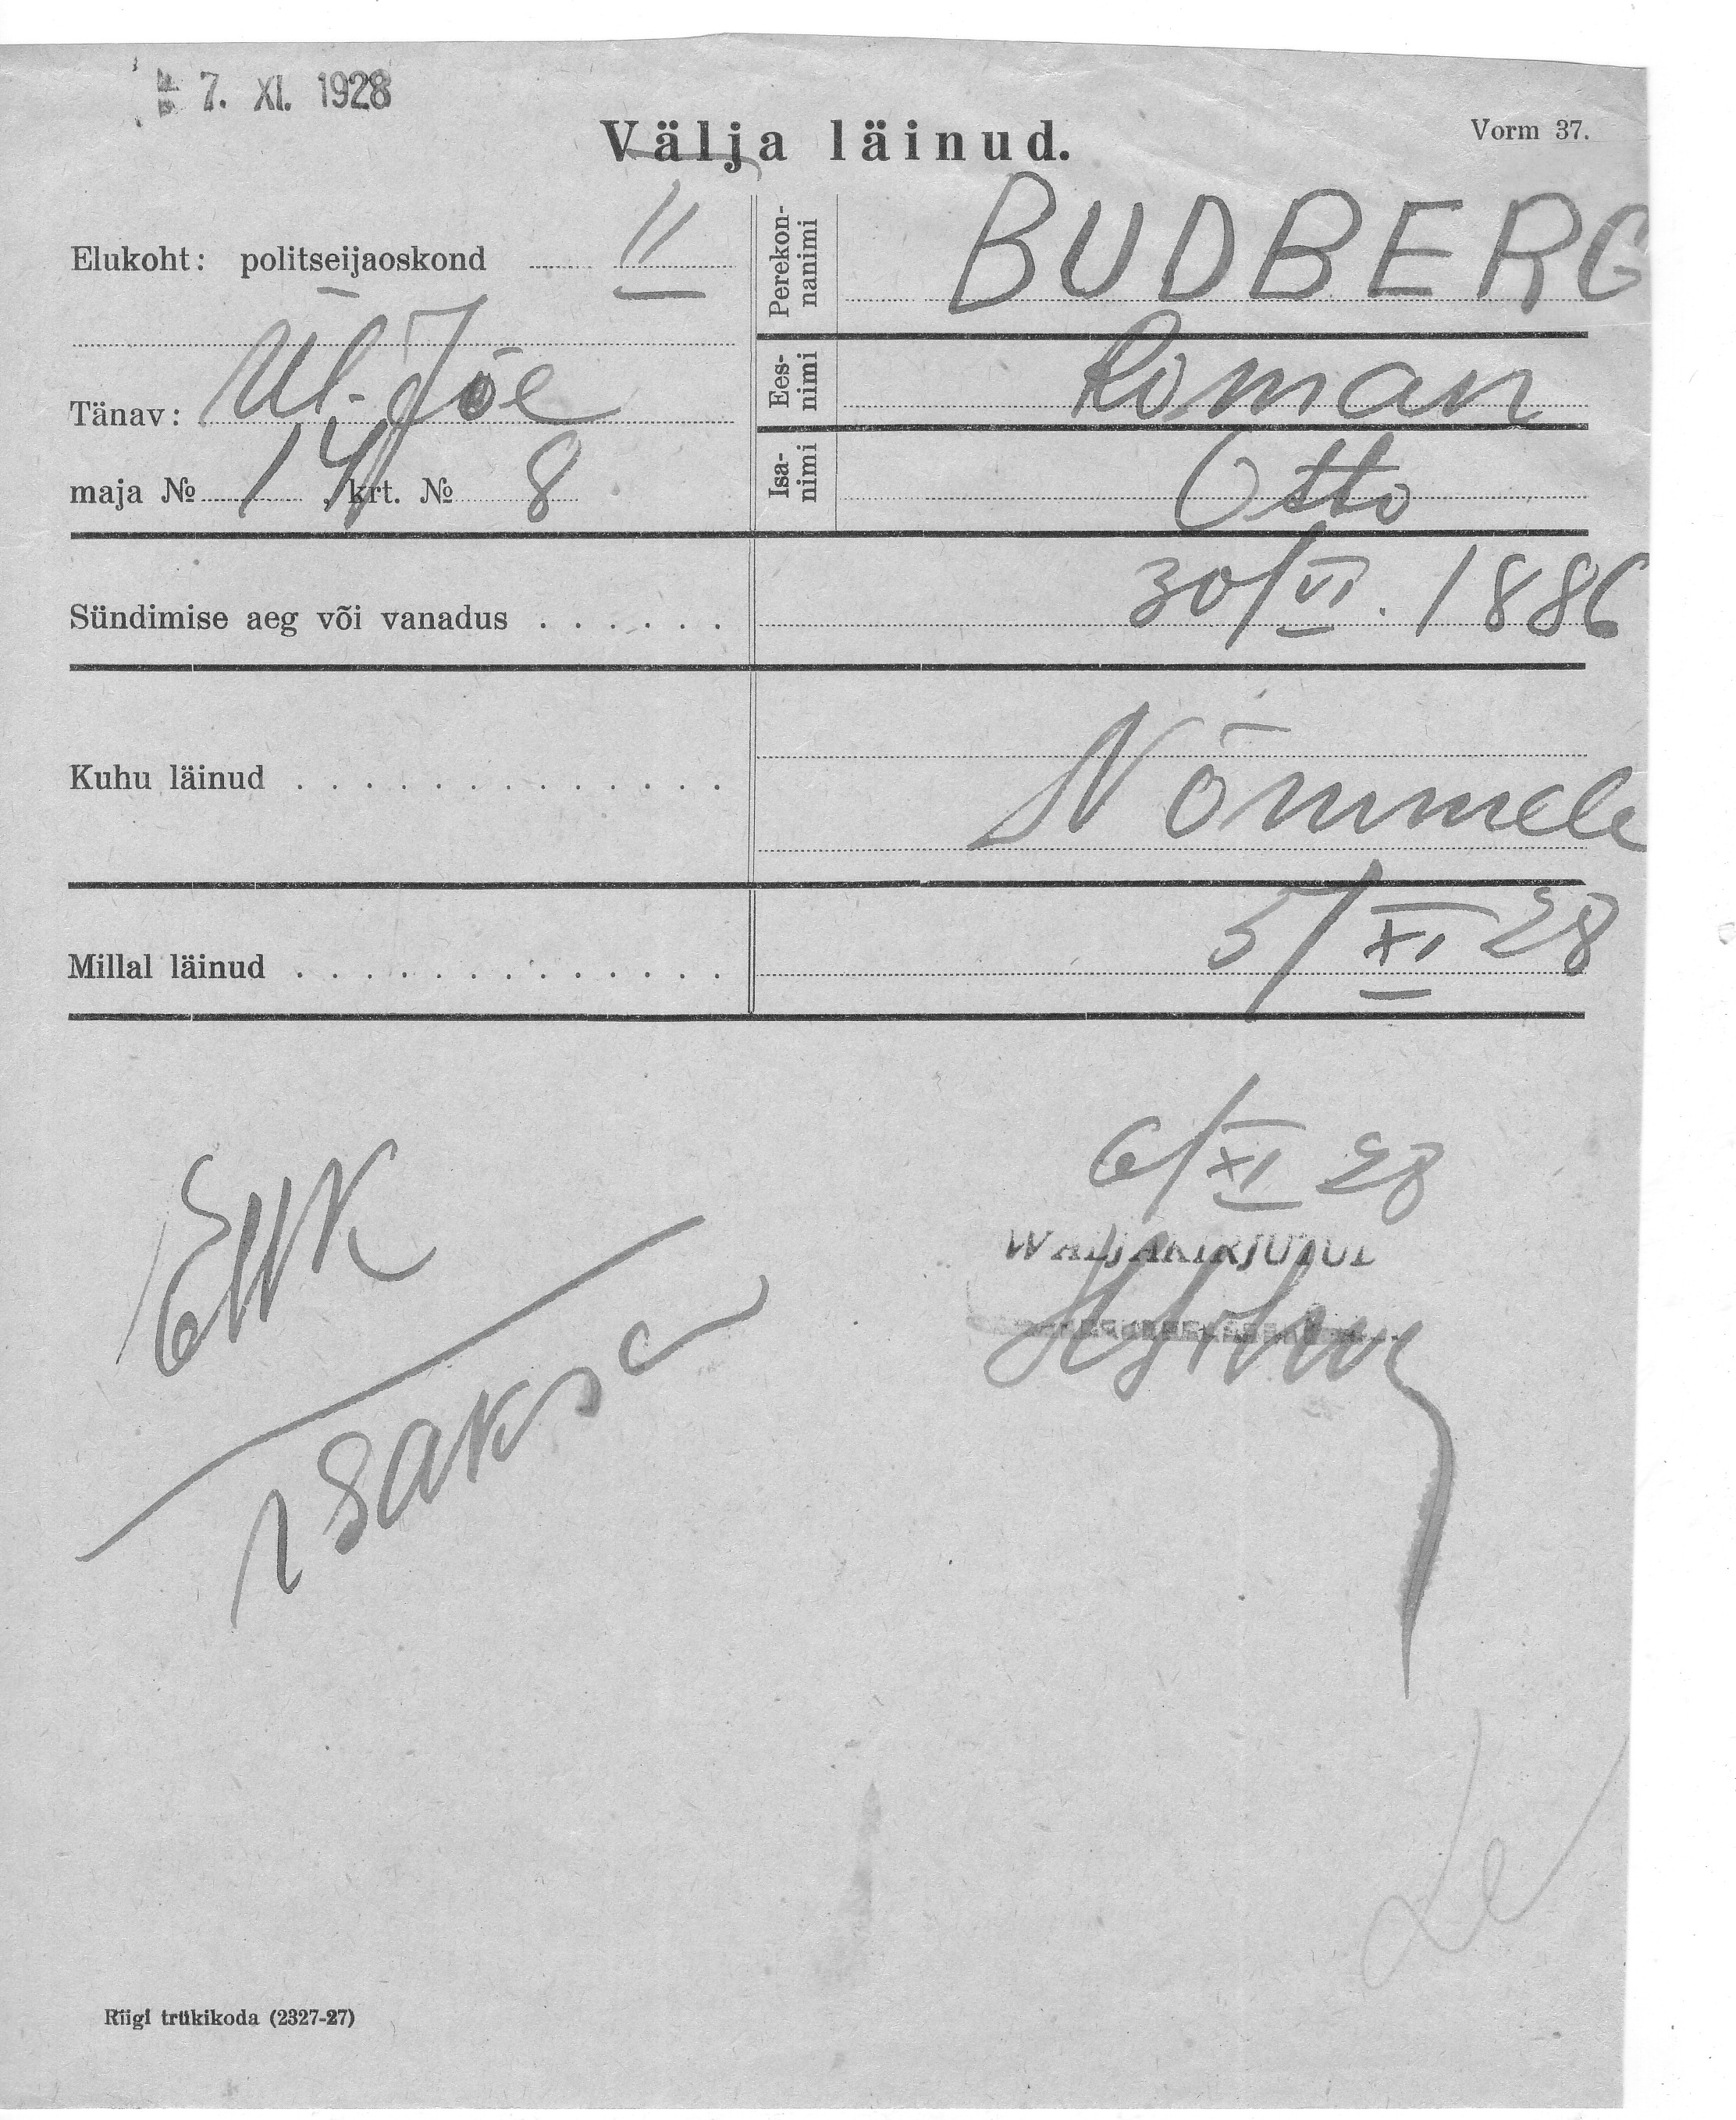 7. XI. 1928
Välja läinud.
Vorm 37.
Elukoht: politseijaoskond II
Tänav: Ül. Jõe
maja № 14, krt. № 8
Perekon-
nanimi BUDBERG
Ees-
nimi Roman
Isa-
nimi Otto
Sündimise aeg või vanadus . . . . . . 30/VI. 1886
Kuhu läinud . . . . . . . . . . . . . Nõmmele
Millal läinud . . . . . . . . . . . . . 5/XI 28
6/XI 28
WALJAKIRJUTUD
EWK
saksa
Riigi trükikoda (2327-27)